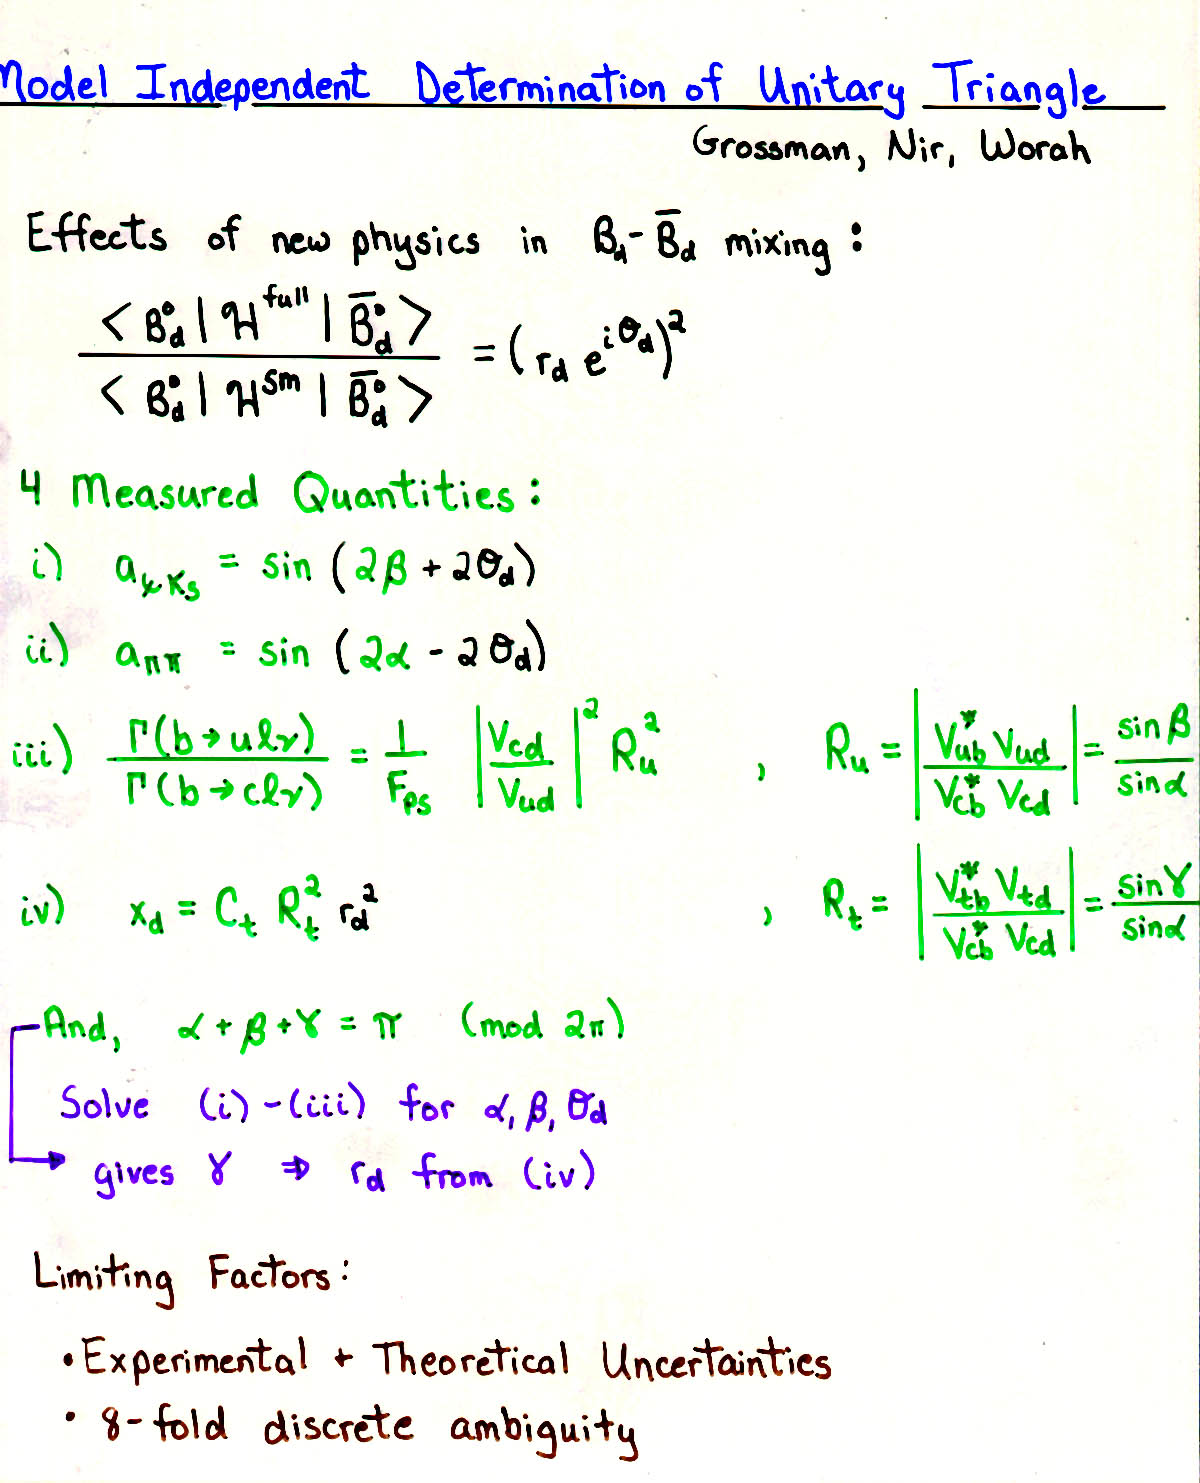 Model Independent Determination of Unitary Triangle
Grossman, Nir, Worah
Effects of new physics in B_d - B̄_d mixing :
<B_d^0 | H^full | B̄_d^0> / <B_d^0 | H^SM | B̄_d^0> = (r_d e^{iθ_d})^2
4 Measured Quantities :
i) a_{ψK_s} = sin (2β + 2θ_d)
ii) a_{ππ} = sin (2α - 2θ_d)
iii) Γ(b→uℓν) / Γ(b→cℓν) = 1/F_ps |V_cd / V_ud|^2 R_u^2 , R_u = |V_ub^* V_ud / V_cb^* V_cd| = sinβ / sinα
iv) x_d = C_t R_t^2 r_d^2 , R_t = |V_tb^* V_td / V_cb^* V_cd| = sinγ / sinα
And, α + β + γ = π (mod 2π)
Solve (i) - (iii) for α, β, θ_d
gives γ ⇒ r_d from (iv)
Limiting Factors :
• Experimental + Theoretical Uncertainties
• 8-fold discrete ambiguity